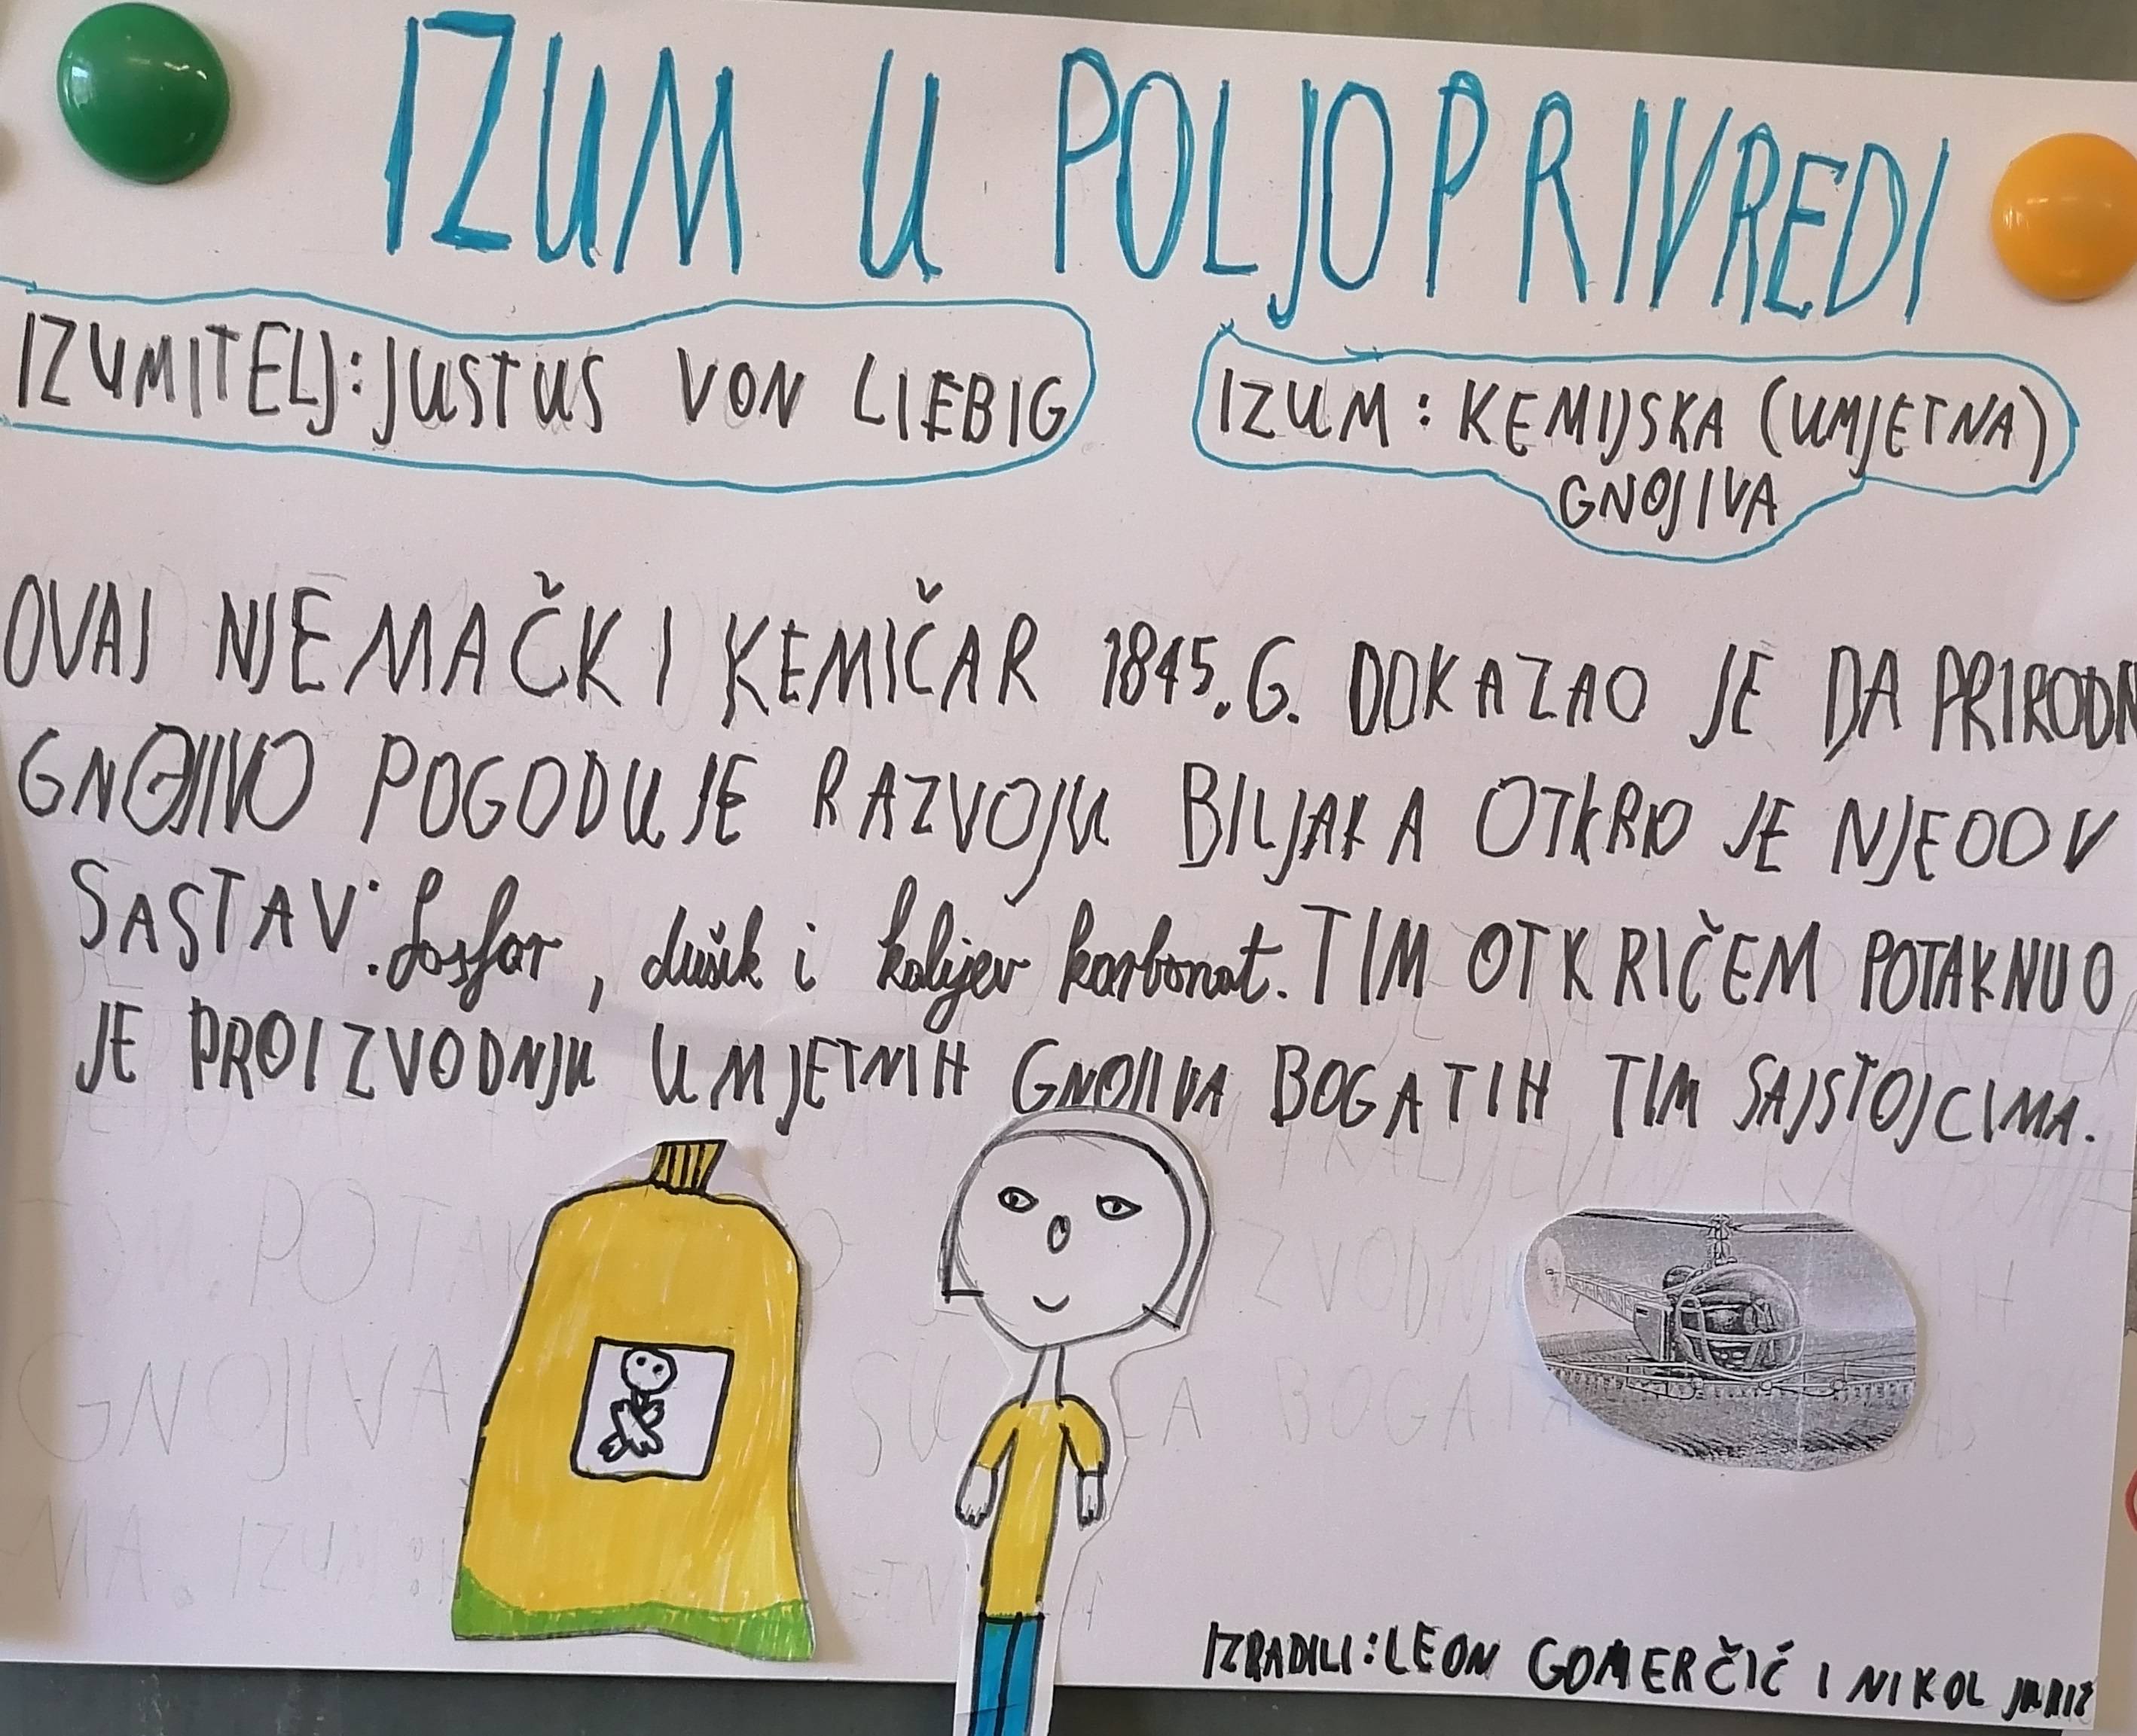 IZUM U POLJOPRIVREDI
IZUMITELJ: JUSTUS VON LIEBIG
IZUM: KEMIJSKA (UMJETNA)
GNOJIVA
OVAJ NJEMAČKI KEMIČAR 1845.G. DOKAZAO JE DA PRIRODN
GNOJIVO POGODUJE RAZVOJU BILJAKA OTKRIO JE NJEOOV
SASTAV: fosfor, dušik i kalijev karbonat. TIM OTKRIČEM POTAKNUO
JE PROIZVODNJU UMJETNIH GNOJIVA BOGATIH TIM SAJSTOJCIMA.
IZRADILI: LEON GOMERČIĆ I NIKOL